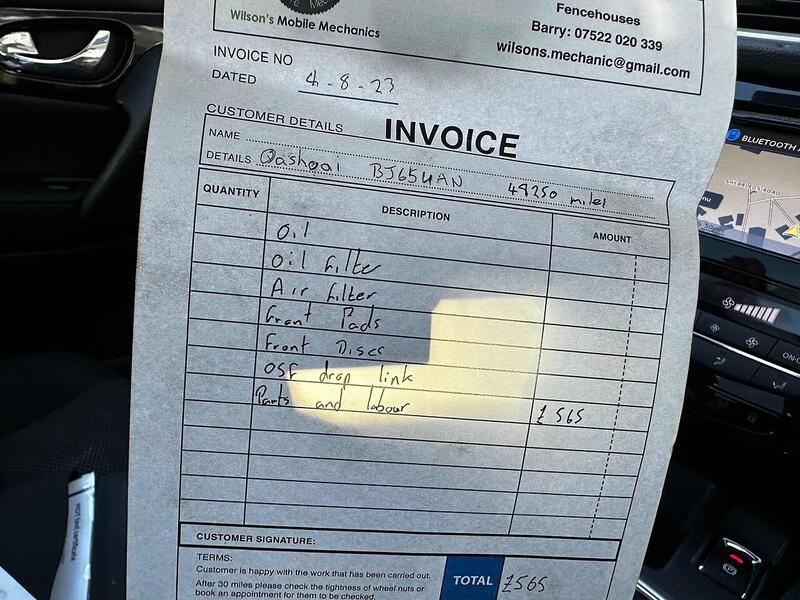 Wilson's Mobile Mechanics
Fencehouses
Barry: 07522 020 339
wilsons.mechanic@gmail.com
INVOICE NO
DATED 4-8-23
CUSTOMER DETAILS
INVOICE
NAME
DETAILS Qashqai BJ65UAN 48250 miles
QUANTITY DESCRIPTION AMOUNT
Oil
Oil Filter
Air Filter
Front Pads
Front Discs
OSF drop link
Parts and labour £565
CUSTOMER SIGNATURE:
TERMS:
Customer is happy with the work that has been carried out.
After 30 miles please check the tightness of wheel nuts or
book an appointment for them to be checked.
TOTAL £565
BLUETOOTH
MOT test certificate
ON-O